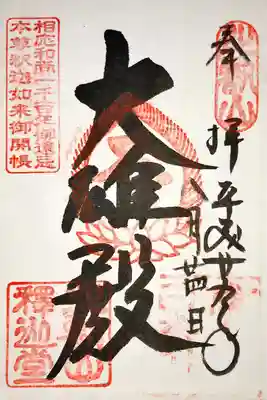 奉拝
平成
八月廿四日
大雄殿
相応和尚一千百年御遠忌
本尊釈迦如来御開帳
釋迦堂